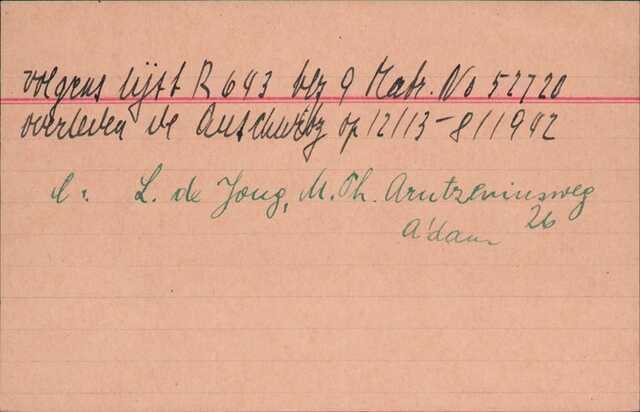 volgens lijst R 643 blz 9 Matr. No 52720
overleden te Auschwitz op 12/13-8/1942
C: L. de Jong, M. Ph. Arntzeniusweg
26
A'dam